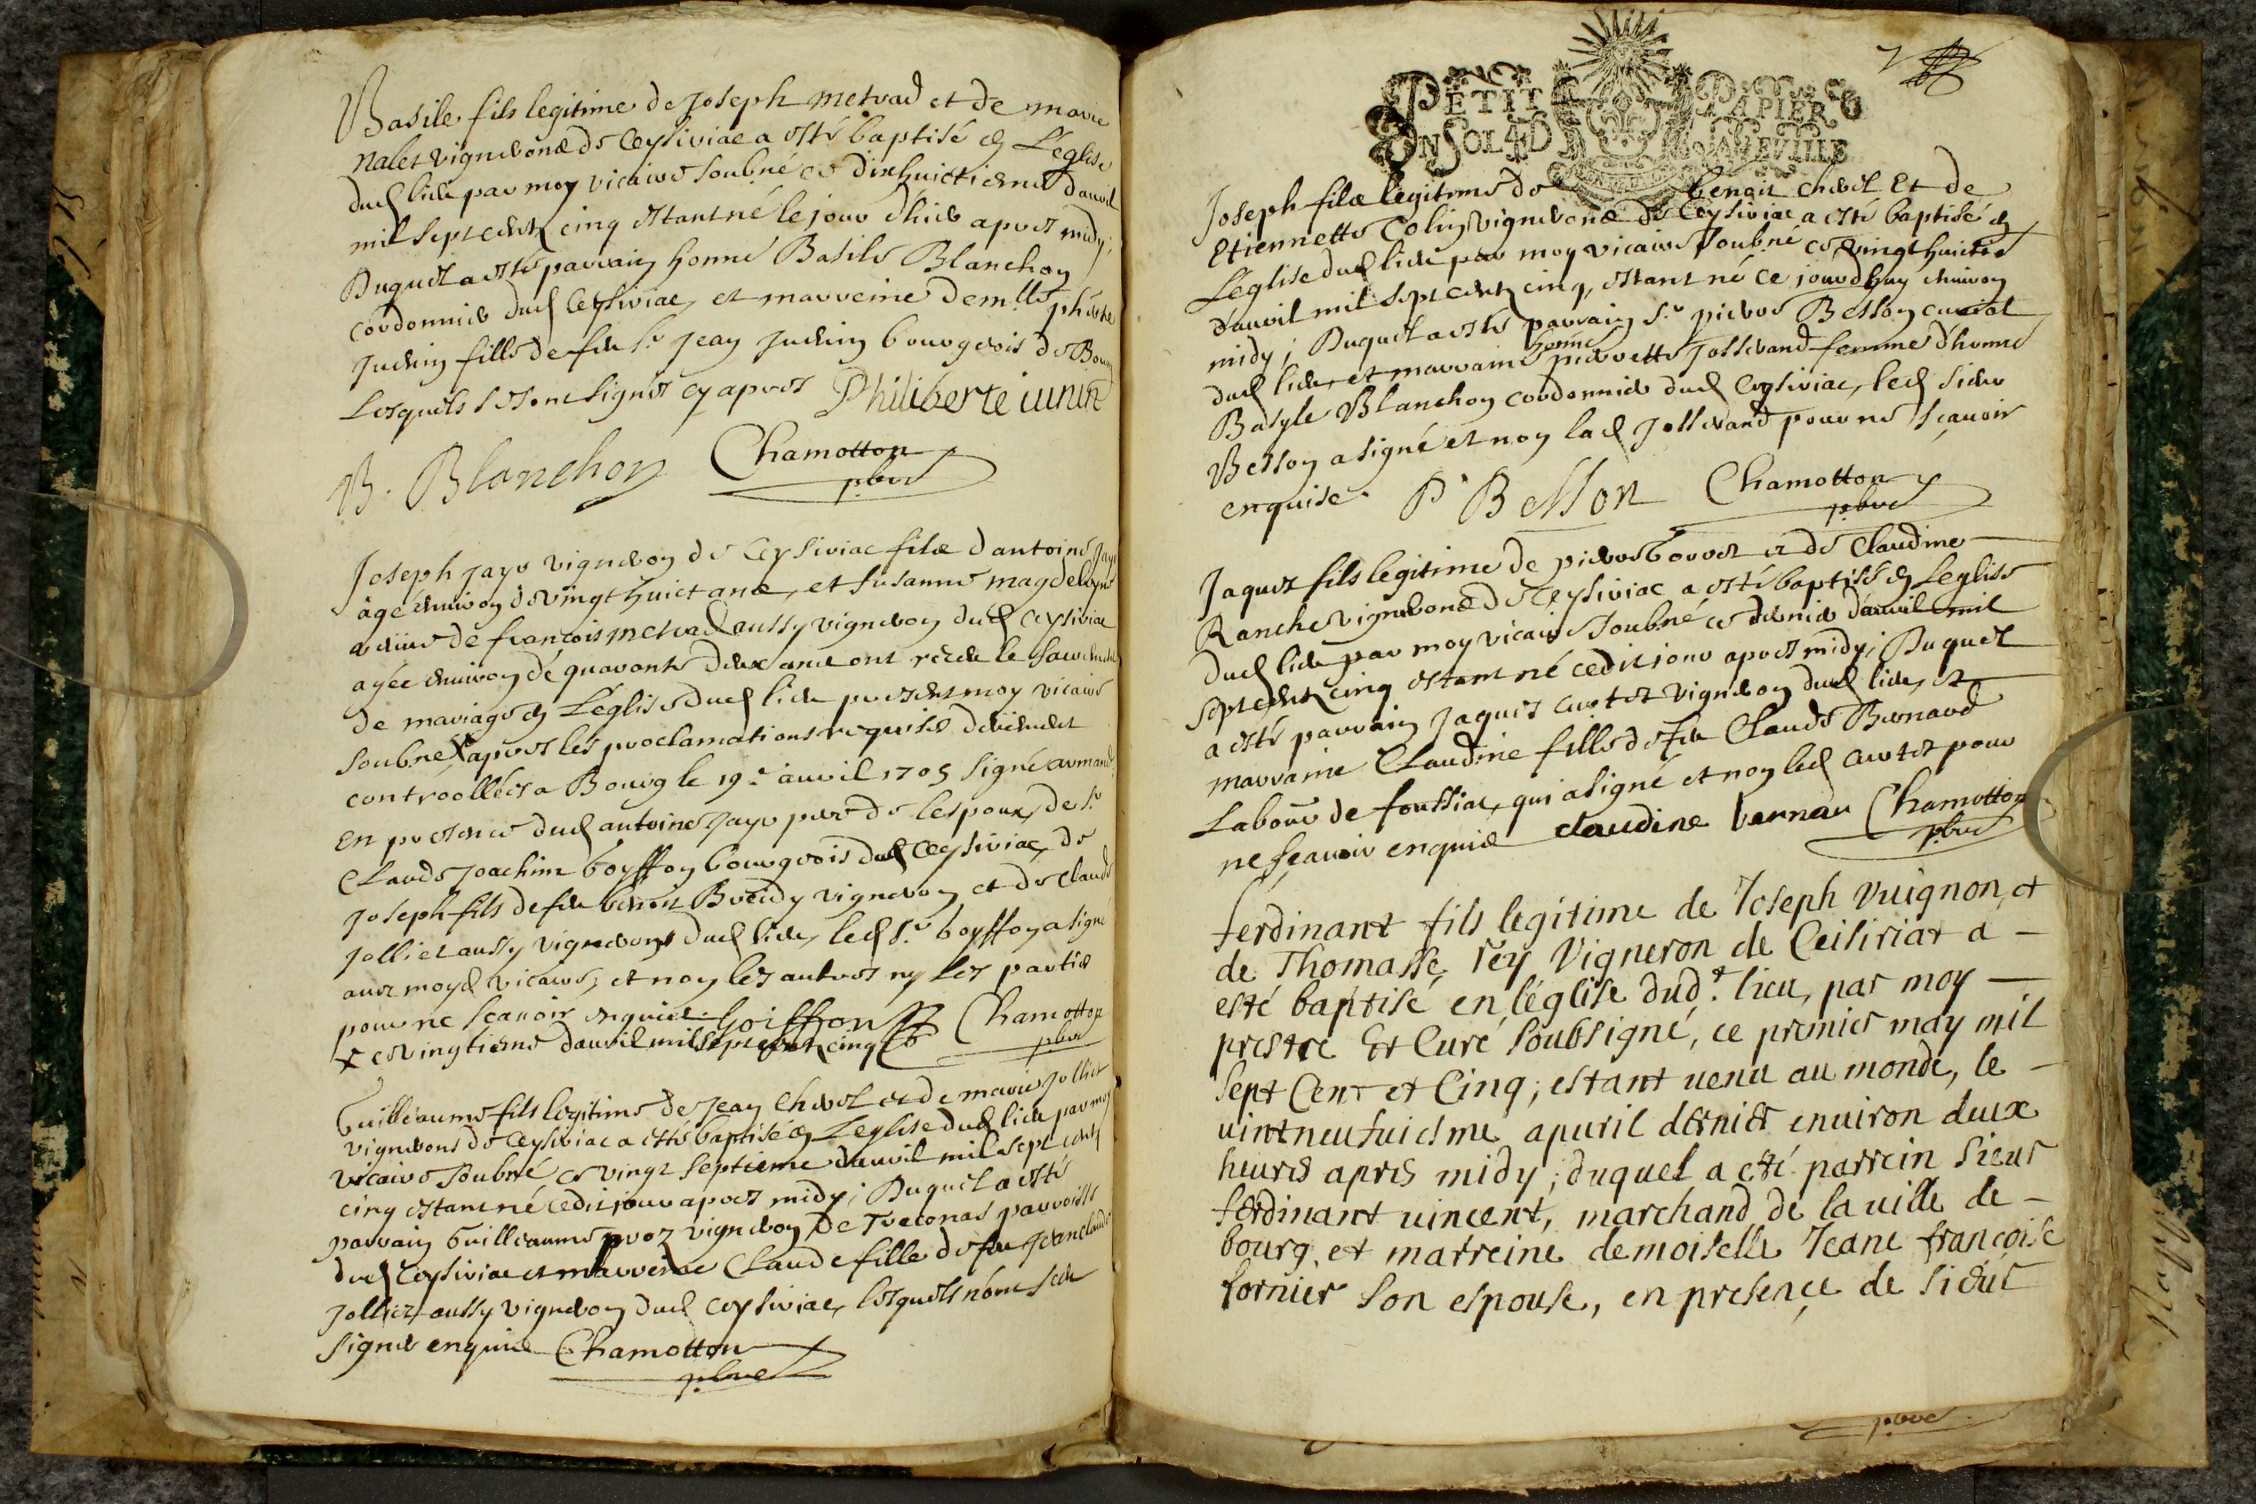 Basile fils legitime de Joseph metrad et de marie
nalet vignerons de Ceysiriac a esté baptisé en L'eglise
dud lieu par moy vicaire soubné ce dixhuictieme d'avril
mil sept cents cinq estant né le jour d'hier apres midy;
Duquel a esté parrain honné Basile Blanchon
cordonnier dud Ceysiriac, et marreine dem.lle ph.erte
Junin fille de feu s.r Jean Junin bourgeois de Bourg
Lesquels se sont signés cy apres Philiberte iunin
B. Blanchon Chamotton
pbre
Joseph jayr vigneron de Ceysiriac fils d'antoine Jayr
âgé environ de vingt huict ans, et susanne magdeleyne
veuve de françois metrad aussy vigneron dud Ceysiriac
agée environ de quarante deux ans ont receu le sacrement
de mariage en L'eglise dud lieu present moy vicaire
soubné x apres les proclamations requises deüement
controollées a Bourg le 19.e avril 1705 signé armand.
En presence dud antoine Jayr pere de lespoux, de s.r
Claude Joachim boyffon bourgeois dud Ceysiriac, de
Joseph fils de feu benoit Brendy vigneron et de claude
Jolliet aussy vignerons dud lieu, led s.r boyffon a signé
avec moyd vicaire, et non les autres ny les parties
pour ne scavoir enquis. Goiffon Chamotton
x ce vingtieme d'avril mil sept cents cinq pbre
Guilleaume fils legitime de Jean Chevol et de marie Jolliet
vignerons de Ceysiriac a esté baptisé en L'eglise dud lieu par moy
vicaire soubné ce vingt septieme d'avril mil sept cents
cinq estant né cedit jour apres midy; Duquel a esté
parrain Guilleaume proz vigneron De Treconas parroisse
dud Ceysiriac et marreine Claude fille de feu Jeanclaude
Jolliet aussy vigneron dud Ceysiriac, lesquels n'ont sceu
signer enquis Chamotton
pbre
7
PETIT PAPIER
UN SOL 4 D LA FEVILLE
Joseph fils legitime de benoit chevol Et de
Etiennette Colin vignerons de Ceysiriac a esté baptisé en
L'eglise dud lieu par moy vicaire soubné ce vingt huictie
d'avril mil sept cents cinq, estant né ce jourdhuy environ
midy; Duquel a esté parrain s.r pierre Besson curial
dud lieu, et marraine honné pierrette Josserand femme d'honné
Basyle Blanchon cordonnier dud Ceysiriac, led sieur
Besson a signé et non lad Josserand pour ne sçavoir
enquise. P Besson Chamotton
pbre
Jaques fils legitime de pierre borret et de Claudine
Ranche vignerons de Ceysiriac a esté baptisé en L'eglise
dud lieu par moy vicaire soubné ce dernier d'avril mil
sept cents cinq estant né cedit jour apres midy; Duquel
a esté parrain Jaques curtet vigneron dud lieu, et
marraine Claudine fille de feu Claude Bernard
Laboure de foussiac, qui a signé et non led curtet pour
ne scavoir enquis claudine bernar Chamotton
pbre
ferdinant fils legitime de Joseph vuignon, et
de Thomasse rey Vigneron de Ceisiriat a
esté baptisé en l'église dud.t lieu, par moy
prestre Et Curé soubsigné, ce premier may mil
sept Cent et Cinq; estant uenu au monde, le
uintneufuiesme apuril dernier enuiron deux
heures apres midy; duquel a eté parrein sieur
ferdinant uincent, marchand de la uille de
bourg, et marreine demoiselle Jeane françoise
fornier son espouse, en presençe de sieur
pbre